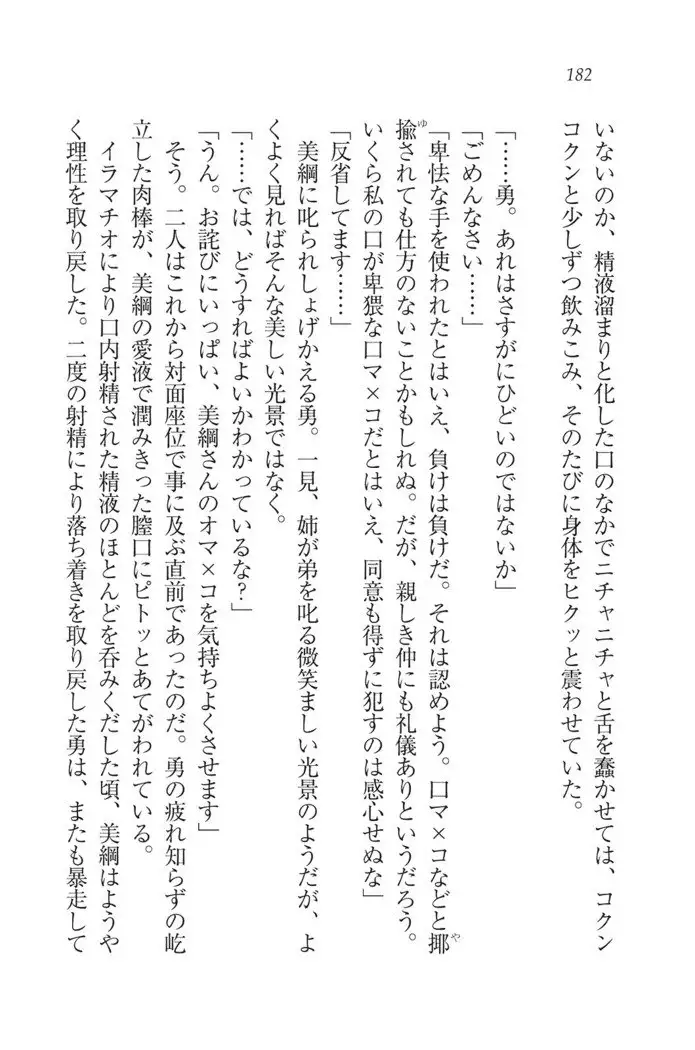 182
いないのか、精液溜まりと化した口のなかでニチャニチャと舌を蠢かせては、コクン
コクンと少しずつ飲みこみ、そのたびに身体をヒクッと震わせていた。
「……勇。あれはさすがにひどいのではないか」
「ごめんなさい……」
「卑怯な手を使われたとはいえ、負けは負けだ。それは認めよう。口マ×コなどと揶
揄されても仕方のないことかもしれぬ。だが、親しき仲にも礼儀ありというだろう。
いくら私の口が卑猥な口マ×コだとはいえ、同意も得ずに犯すのは感心せぬな」
「反省してます……」
美綱に叱られしょげかえる勇。一見、姉が弟を叱る微笑ましい光景のようだが、よ
くよく見ればそんな美しい光景ではなく。
「……では、どうすればよいかわかっているな?」
「うん。お詫びにいっぱい、美綱さんのオマ×コを気持ちよくさせます」
そう。二人はこれから対面座位で事に及ぶ直前であったのだ。勇の疲れ知らずの屹
立した肉棒が、美綱の愛液で潤みきった膣口にピトッとあてがわれている。
イラマチオにより口内射精された精液のほとんどを呑みくだした頃、美綱はようや
く理性を取り戻した。二度の射精により落ち着きを取り戻した勇は、またも暴走して